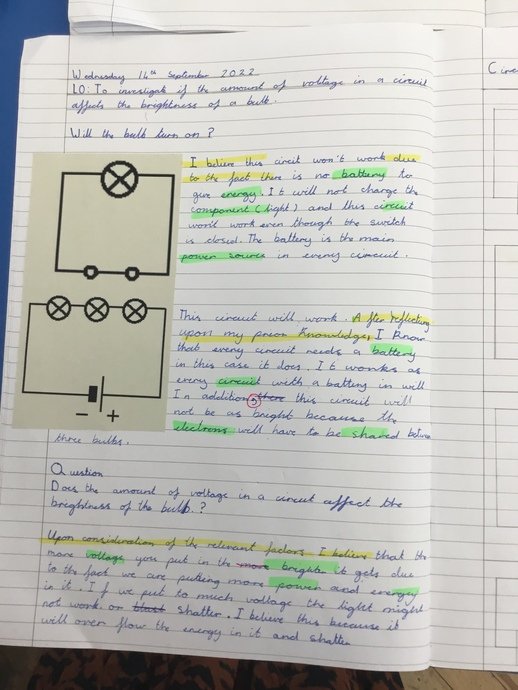 Wednesday 14th September 2022
LO: To investigate if the amount of voltage in a circuit
affects the brightness of a bulb.
Will the bulb turn on?
I believe this circit won't work due
to the fact there is no battery to
give energy. It will not charge the
component (light) and this circuit
won't work even though the switch
is closed. The battery is the main
power source in every circuit.
This circuit will work. After reflecting
upon my prior knowledge, I know
that every circuit needs a battery
in this case it does. It works as
every circuit with a battery in will
In addition there this circuit will
not be as bright because the
electrons will have to be shared between
three bulbs.
- +
Question
Does the amount of voltage in a circuit affect the
brightness of the bulb?
Upon consideration of the relevant factors I believe that the
more voltage you put in the more brighter it gets due
to the fact we are putting more power and energy
in it. If we put to much voltage the light might
not work or shatter. I believe this because it
will over flow the energy in it and shatter